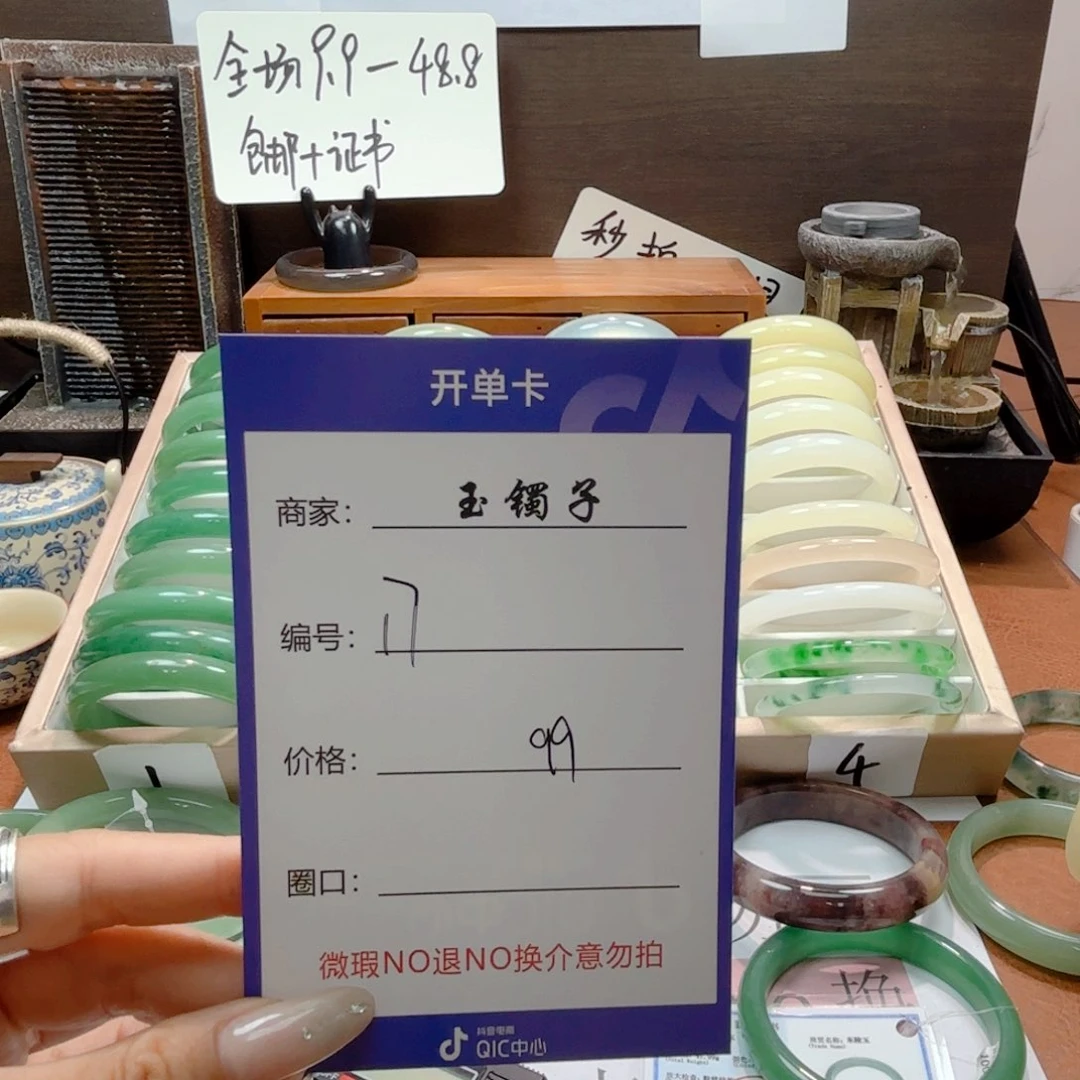 全场9.9—48.8
包邮+证书
秒拍
开单卡
商家：玉镯子
编号：17
价格：99
圈口：
微瑕NO退NO换介意勿拍
抖音电商
QIC中心
1
4
换